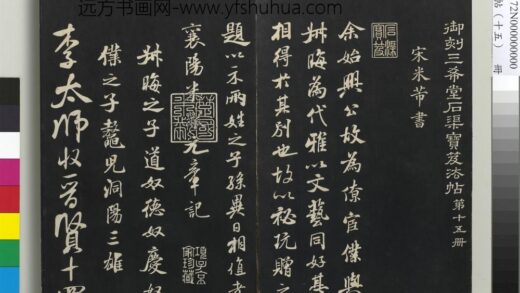 远方书画网-www.yfshuhua.com
72N000000000
帖（十五） 冊
御刻三希堂石渠寶笈法帖 第十五冊
宋米芾書
余始興公故為僚宦僕與
叔晦為代雅以文藝同好甚
相得於其別也故以秘玩贈之
題以示兩姓之子孫異日相值者
襄陽米 元章記
叔晦之子道奴德奴慶奴
僕之子鼇兒洞陽三雄
項子京家珍藏
李太師收晉賢十四